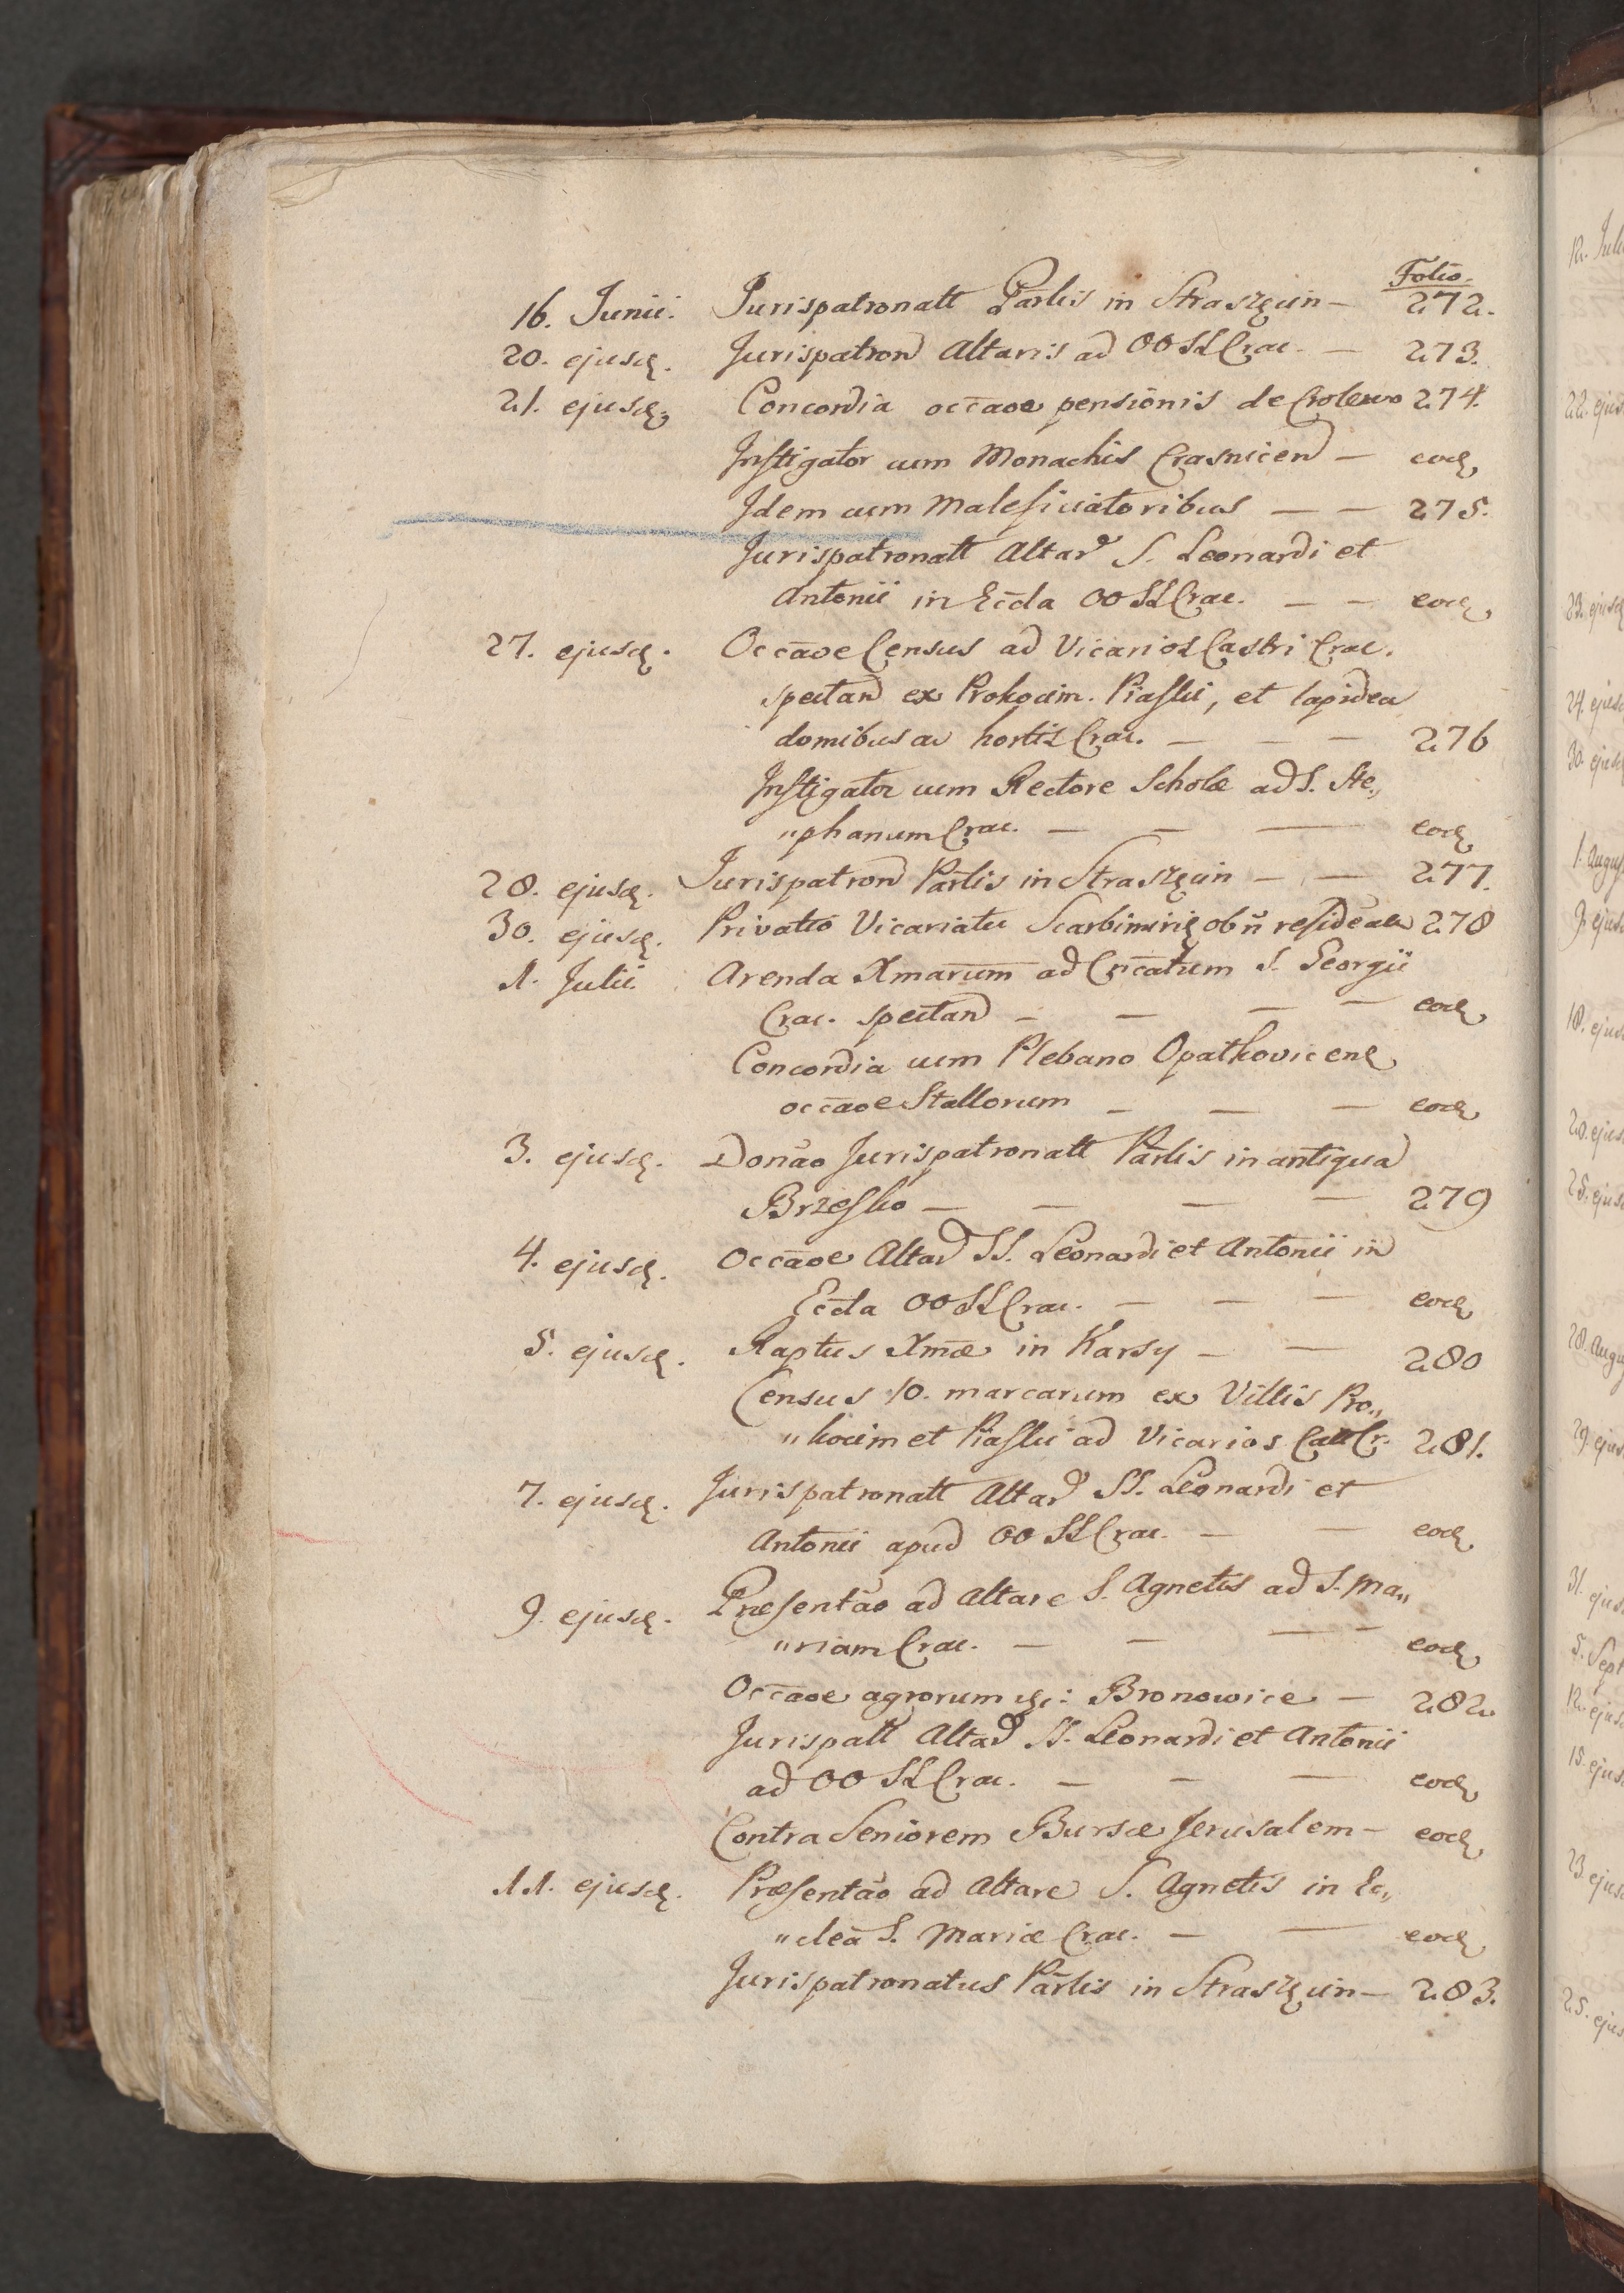 Folio.
16. Junii. Jurispatronatt Pārlis in Straszęcin — 272.
20. ejusdȩ. Jurispatron̄ Altaris ad OO SS Crac. — 273.
21. ejusdȩ. Concordia occāoe pensionis de 274.
Instigator cum Monachis Crasnicen̄ — eodȩ
Idem cum Maleficiatoribus — — 275.
Jurispatronatt Altar̄ S. Leonardi et
Antonii in Eccla OO SS Crac. — — eodȩ
27. ejusdȩ. Occāoe Census ad Vicarios Castri Crac.
spectan̄ ex Prokocim. Piaski, et lapidea
domibus ac hortis Crac. — — — 276
Instigator cum Rectore Scholæ ad S. Ste„
„phanum Crac. — — — eodȩ
28. ejusdȩ. Jurispatron̄ Pārlis in Straszęcin — — 277.
30. ejusdȩ. Privatio Vicariatu Scarbimirię ob n̄ 278
1. Julii. Arenda Xmarum ad Cn̄catum S. Georgii
Crac. spectan̄ — — — — eodȩ
Concordia cum Plebano Opatkovicenȩ
occāoe Stallorum — — — eodȩ
3. ejusdȩ. Donāo Jurispatronatt Pārlis in antiqua
Brzesko — — — — 279
4. ejusdȩ. Occāoe Altar̄ SS. Leonardi et Antonii in
Eccla OO SS Crac. — — — eodȩ
5. ejusdȩ. Raptus Xmæ in Karsy — — 280
Census 10. marcarum ex Villis Pro„
„kocim et Piaski ad Vicarios Catt Cr. 281.
7. ejusdȩ. Jurispatronatt Altar̄ SS. Leonardi et
Antonii apud OO SS Crac. — — eodȩ
9. ejusdȩ. Præsentāo ad Altare S. Agnetis ad S. Ma„
„riam Crac. — — — — eodȩ
Occāoe agrorum Bronowice — 282.
Jurispatt Altar̄ SS. Leonardi et Antonii
ad OO SS Crac. — — — eodȩ
Contra Seniorem Bursæ Jerusalem — eodȩ
11. ejusdȩ. Præsentāo ad Altare S. Agnetis in Ec„
„cleā S. Mariæ Crac. — — eodȩ
Jurispatronatus Pārlis in Straszęcin — 283.